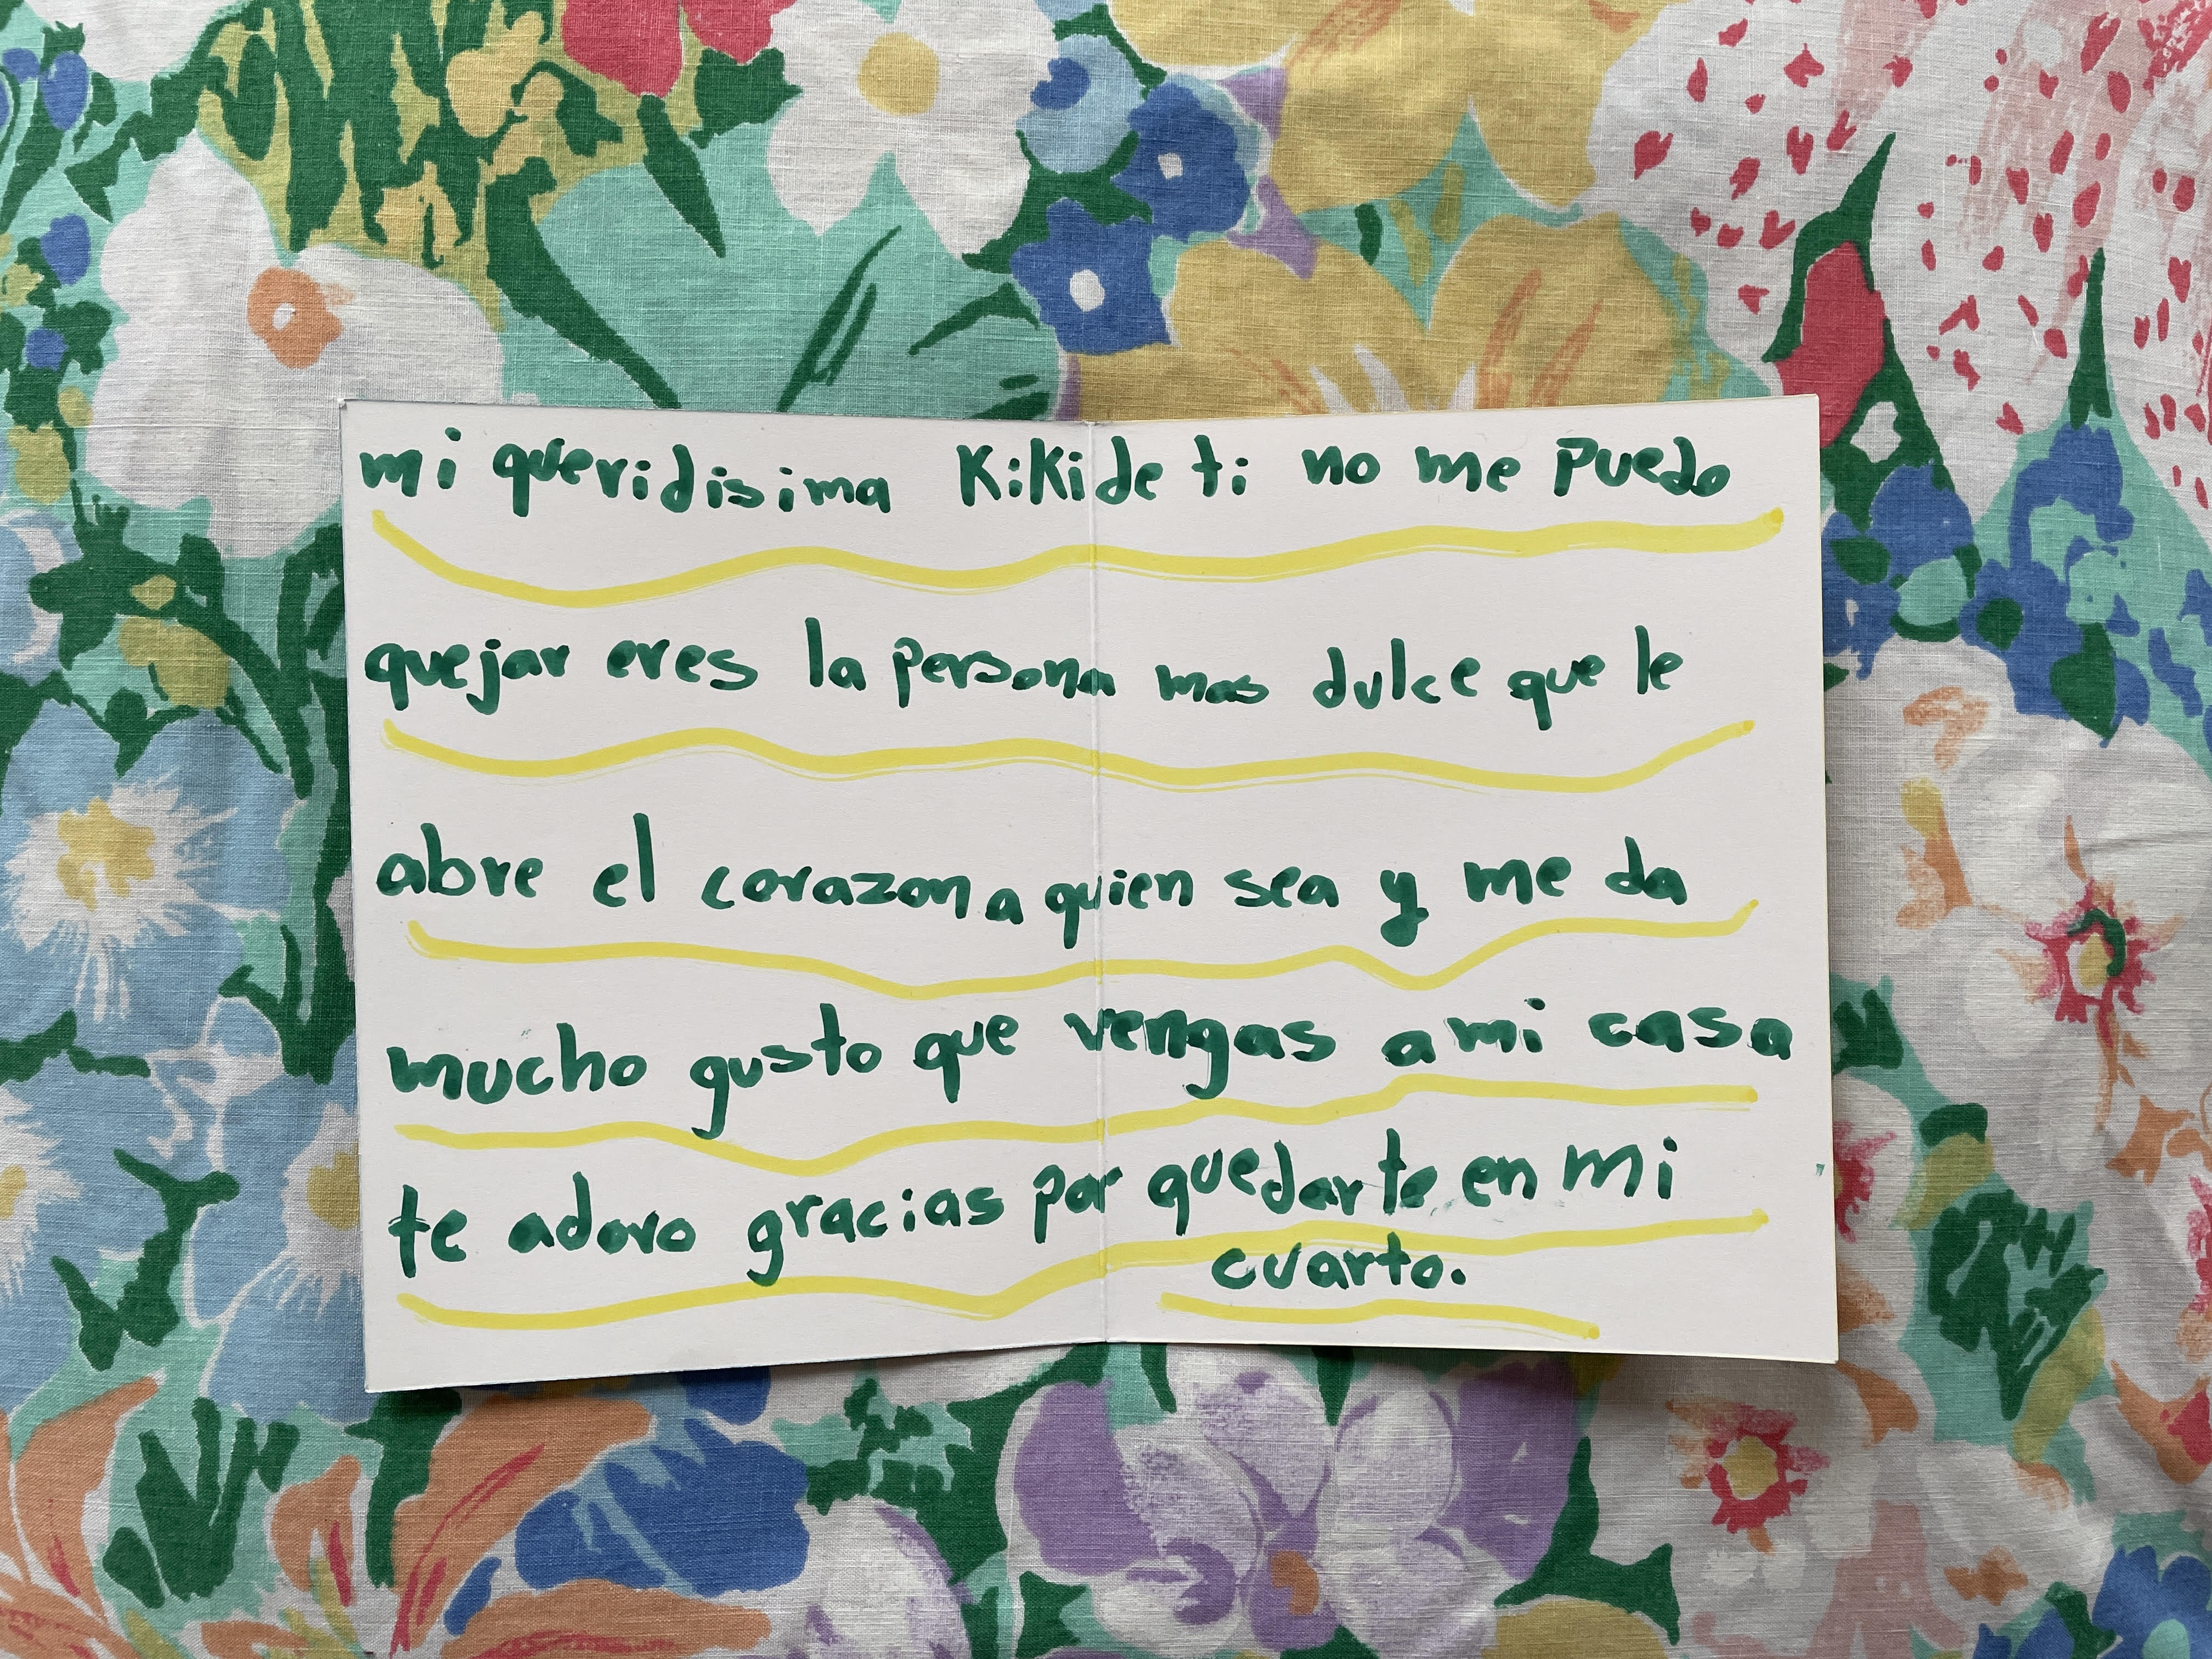 mi queridisima KiKi de ti no me Puedo
quejar eres la persona mas dulce que le
abre el corazon a quien sea y me da
mucho gusto que vengas a mi casa
te adoro gracias por quedarte en mi
cuarto.